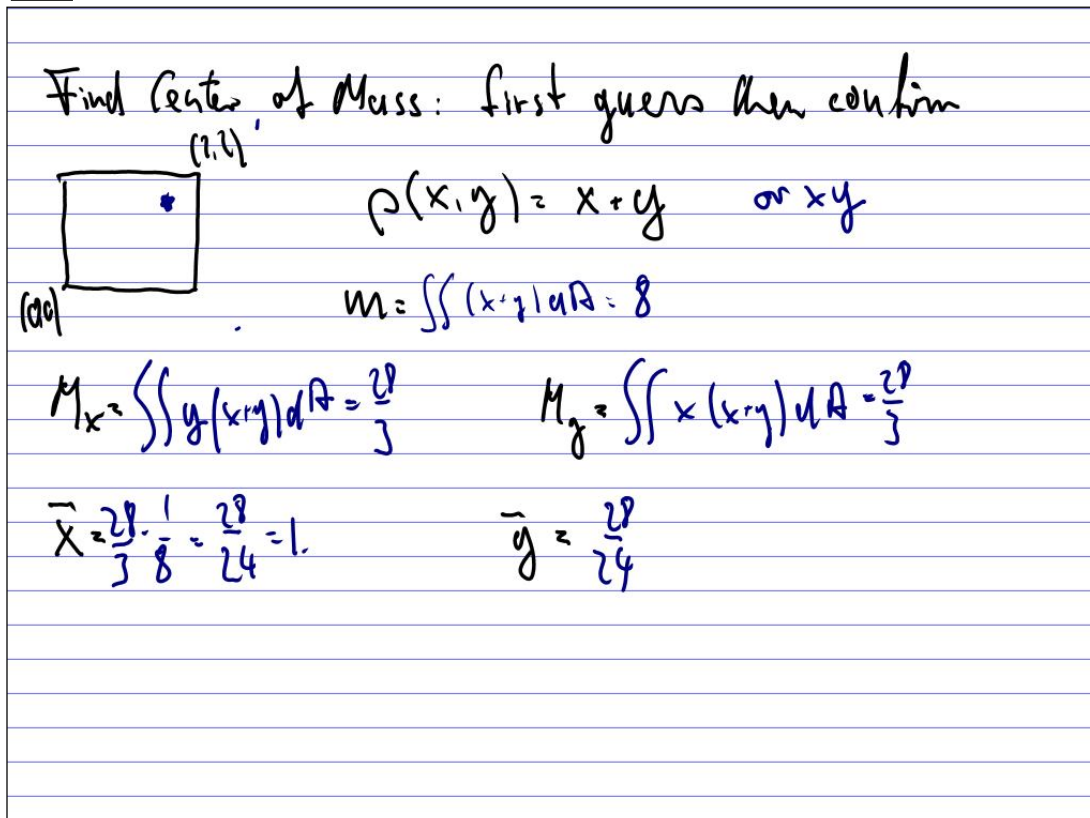 Find Center of Mass: first guess then confirm
(2,2)
ρ(x,y) = x + y or xy
(0,0)
m = ∬ (x+y) dA = 8
M_x = ∬ y(x+y) dA = 28/3 M_y = ∬ x(x+y) dA = 28/3
x̄ = 28/3 · 1/8 = 28/24 = 1. ȳ = 28/24